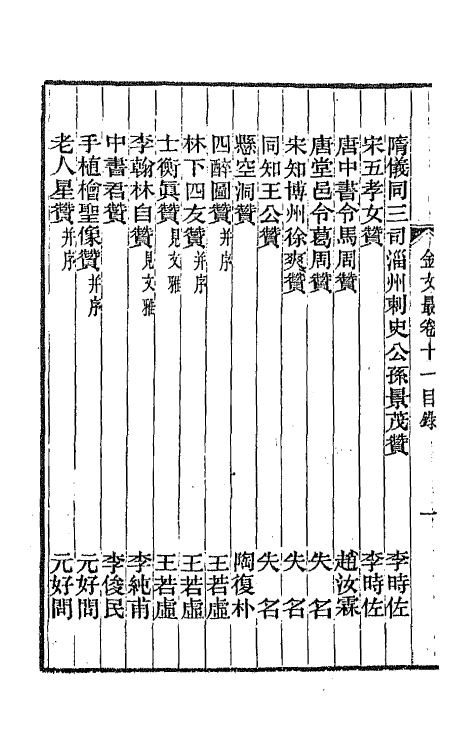 金文最卷十一目錄 一
隋儀同三司淄州刺史公孫景茂贊 李時佐
宋五孝女贊 李時佐
唐中書令馬周贊 趙汝霖
唐堂邑令葛周贊 失名
宋知博州徐爽贊 失名
同知王公贊 失名
懸空洞贊 陶復朴
四醉圖贊并序 王若虛
林下四友贊并序 王若虛
士衡眞贊見文雅 王若虛
李翰林自贊見文雅 李純甫
中書君贊 李俊民
手植檜聖像贊并序 元好問
老人星贊并序 元好問